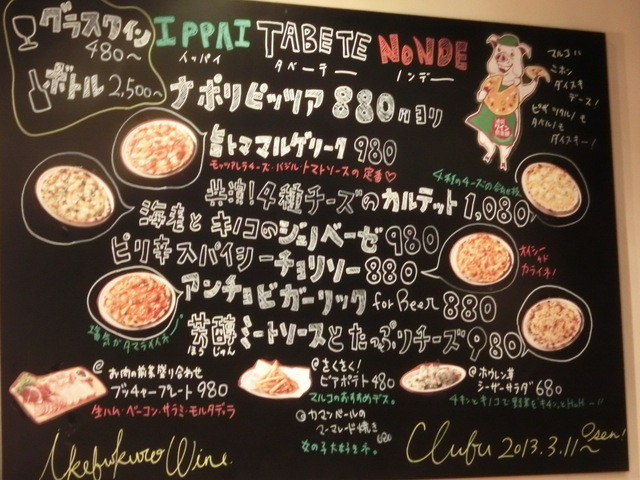 グラスワイン
480〜
ボトル 2,500〜
IPPAI TABETE NoNDE
イッパイ タベーテー ノンデー
ナポリピッツァ 880円ヨリ
マルコハ
ニホン
ダイスキ
デース!
ピザ ツクル!モ
タベル!モ
ダイスキー!
旨トママルゲリータ 980
モッツアレラチーズ・バジル・トマトソースの定番♡
4種のチーズの
共演!4種チーズのカルテット 1,080
海老とキノコのジェノベーゼ 980
ピリ辛スパイシーチョリソー 880
オイシー
カライネ!
アンチョビガーリック for Beer 880
塩気がタマライネ
芳醇ミートソースとたっぷりチーズ 980
ほうじゅん
@お肉の前菜盛り合わせ
ブッチャープレート 980
生ハム・ベーコン・サラミ・モルタデッラ
@さくさく!
ビアポテト 480
マルコのおすすめデス。
@カマンベールの
マーマレード焼き
680
女の子大好きネ。
@ホウレン草
シーザーサラダ 680
Ikebukuro Wine
Clubu 2013.3.11〜 Open!